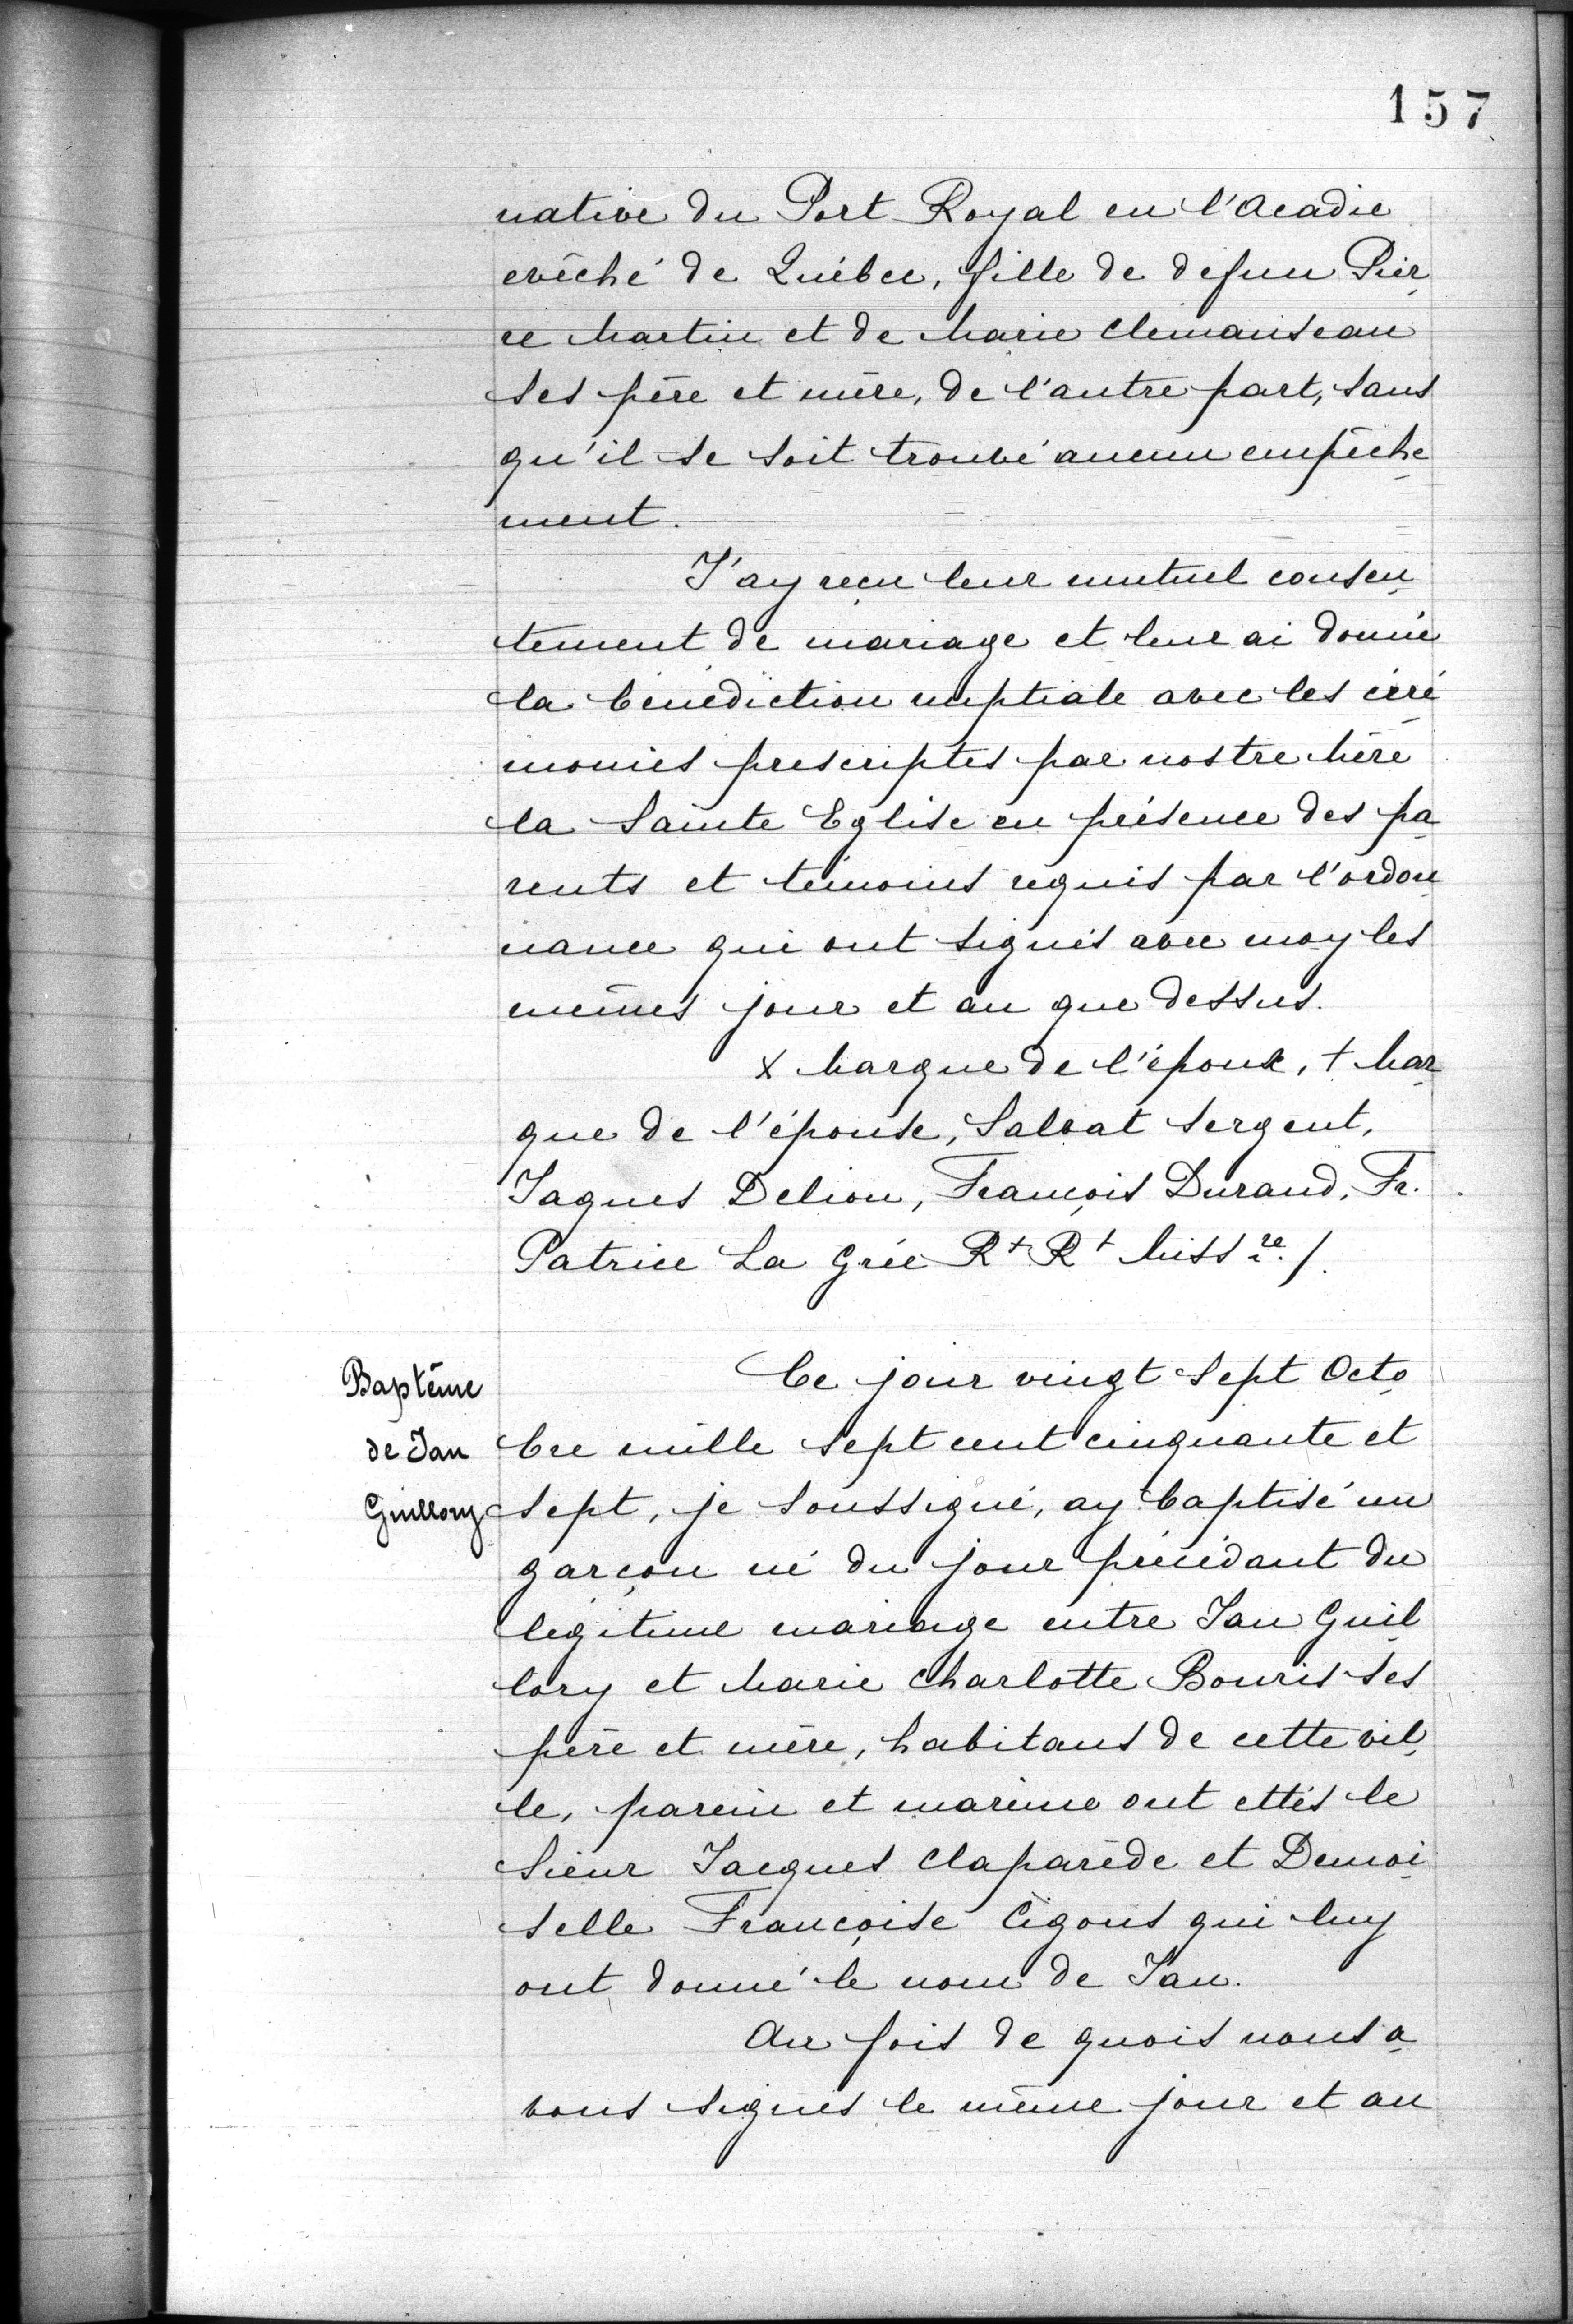 157
native du Port Royal en l'Acadie
evêché de Québec, fille de defun Pier
re Martin et de Marie Clemanseau
ses père et mère, de l'autre part, sans
qu'il se soit trouvé aucun empêche
ment.
J'ay reçu leur mutuel consen
tement de mariage et leur ai donné
la bénédiction nuptiale avec les céré
monies prescriptes par nostre Mère
la Sainte Eglise en présence des pa
rents et témoins requis par l'ordon
nance qui ont signés avec moy les
mêmes jour et an que dessus.
x Marque de l'époux, + Mar
que de l'épouse, Salvat Sergent,
Jaques Delion, François Durand, Fr.
Patrice La Grée Rt Rt Missre /.
Baptême
de Jan
Guillory
Ce jour vingt sept Octo
bre mille sept cent cinquante et
sept, je soussigné, ay baptisé un
garçon né du jour précédant du
légitime mariage entre Jan Guil
lory et Marie Charlotte Bouris ses
père et mère, habitans de cette vil
le, parein et mareine ont ettés le
Sieur Jacques Claparède et Demoi
selle Françoise Cigons qui luy
ont donné le nom de Jan.
An fois de quois nous a
vons signés le même jour et an